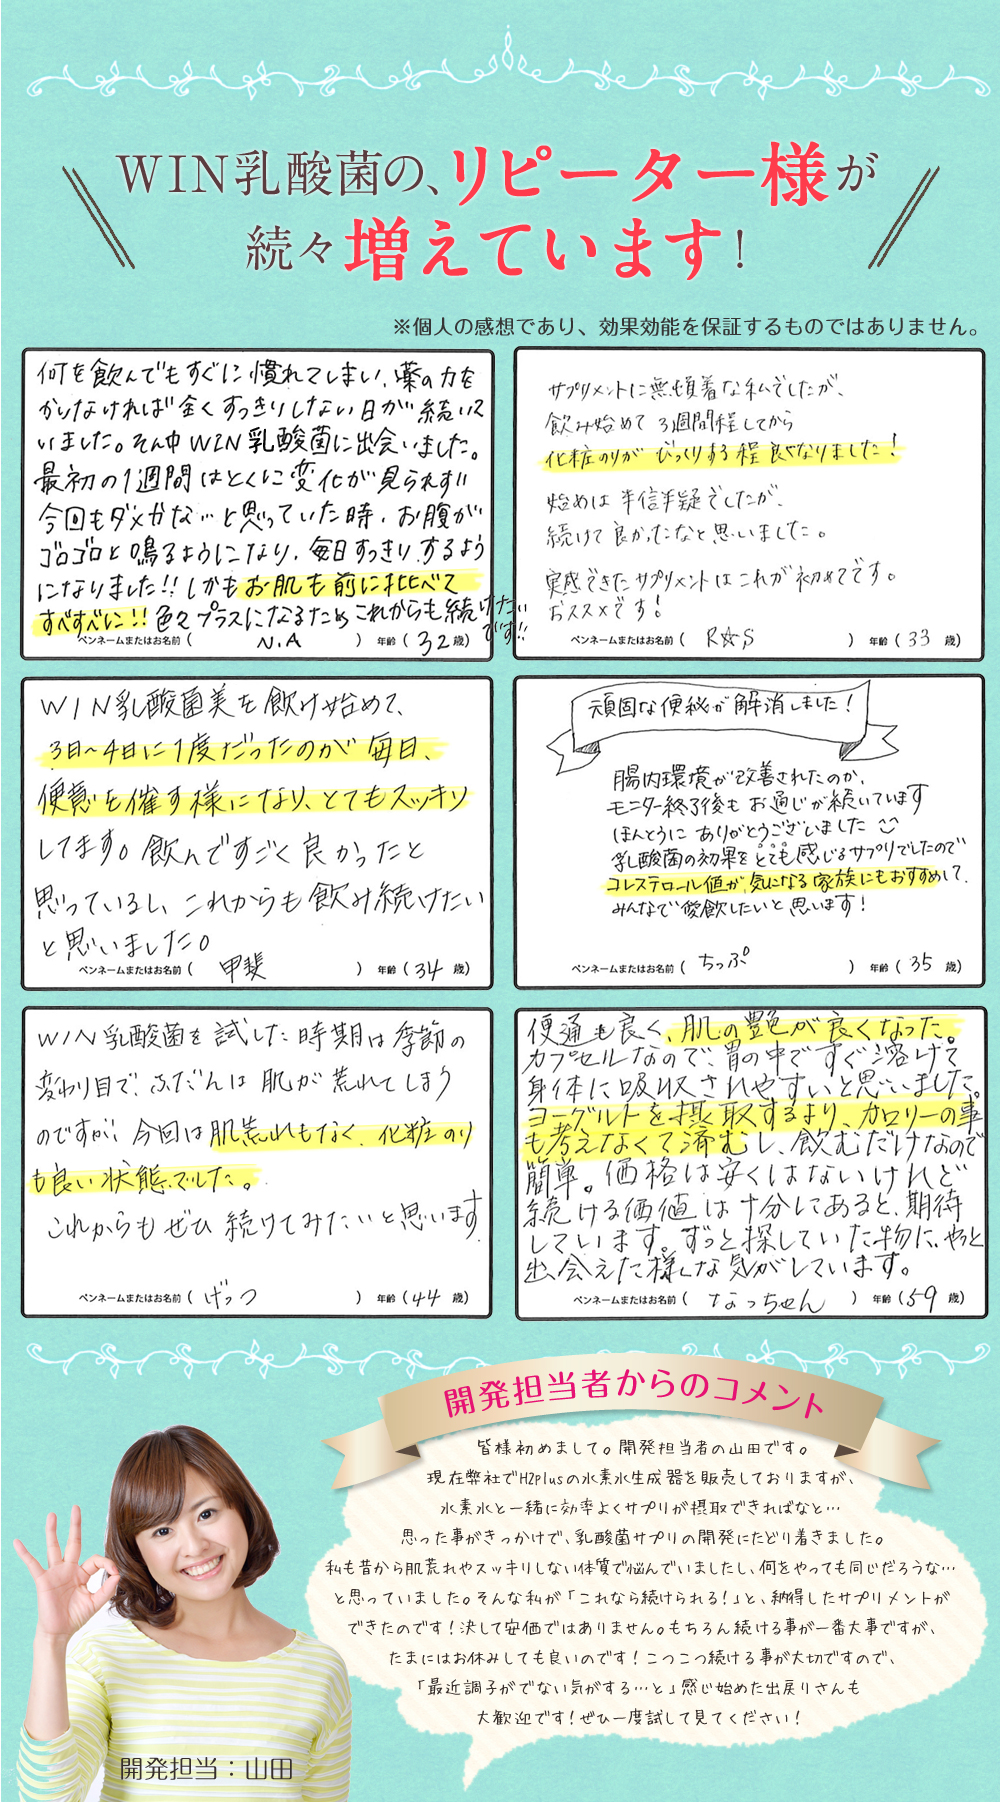 WIN乳酸菌の、リピーター様が
続々増えています!
※個人の感想であり、効果効能を保証するものではありません。
何を飲んでもすぐに慣れてしまい、薬の力を
かりなければ全くすっきりしない日が続いて
いました。そん中WIN乳酸菌に出会いました。
最初の1週間はとくに変化が見られず!!
今回もダメかな…と思っていた時、お腹が
ゴロゴロと鳴るようになり、毎日すっきりするよう
になりました!!しかもお肌も前に比べて
すべすべに!!色々プラスになるためこれからも続けたい
です!!
ペンネームまたはお名前( N.A ) 年齢(32歳)
サプリメントに無頓着な私でしたが、
飲み始めて3週間程してから
化粧のりがびっくりする程良くなりました!
始めは半信半疑でしたが、
続けて良かったなと思いました。
実感できたサプリメントはこれが初めてです。
おススメです!
ペンネームまたはお名前( R☆S ) 年齢(33歳)
WIN乳酸菌美を飲け始めて、
3日〜4日に1度だったのが毎日、
便意を催す様になり、とてもスッキリ
してます。飲んですごく良かったと
思っているし、これからも飲み続けたい
と思いました。
ペンネームまたはお名前( 甲斐 ) 年齢(34歳)
頑固な便秘が解消しました!
腸内環境が改善されたのか、
モニター終了後もお通じが続いています
ほんとうにありがとうございました
乳酸菌の効果をとても感じるサプリでしたので
コレステロール値が気になる家族にもおすすめして、
みんなで愛飲したいと思います!
ペンネームまたはお名前( ちっぷ ) 年齢(35歳)
WIN乳酸菌を試した時期は季節の
変わり目で、ふだんは肌が荒れてしまう
のですが、今回は肌荒れもなく、化粧のり
も良い状態でした。
これからもぜひ続けてみたいと思います。
ペンネームまたはお名前( げっつ ) 年齢(44歳)
便通も良く、肌の艶が良くなった。
カプセルなので、胃の中ですぐ溶けて
身体に吸収されやすいと思いました。
ヨーグルトを摂取するより、カロリーの事
も考えなくて済むし、飲むだけなので
簡単。価格は安くはないけれど
続ける価値は十分にあると、期待
しています。ずっと探していた物に、やっと
出会えた様な気がしています。
ペンネームまたはお名前( なっちゃん ) 年齢(59歳)
開発担当者からのコメント
皆様初めまして。開発担当者の山田です。
現在弊社でH2plusの水素水生成器を販売しておりますが、
水素水と一緒に効率よくサプリが摂取できればなと…
思った事がきっかけで、乳酸菌サプリの開発にたどり着きました。
私も昔から肌荒れやスッキリしない体質で悩んでいましたし、何をやっても同じだろうな…
と思っていました。そんな私が「これなら続けられる!」と、納得したサプリメントが
できたのです!決して安価ではありません。もちろん続ける事が一番大事ですが、
たまにはお休みしても良いのです!こつこつ続ける事が大切ですので、
「最近調子がでない気がする…と」感じ始めた出戻りさんも
大歓迎です!ぜひ一度試して見てください!
開発担当:山田